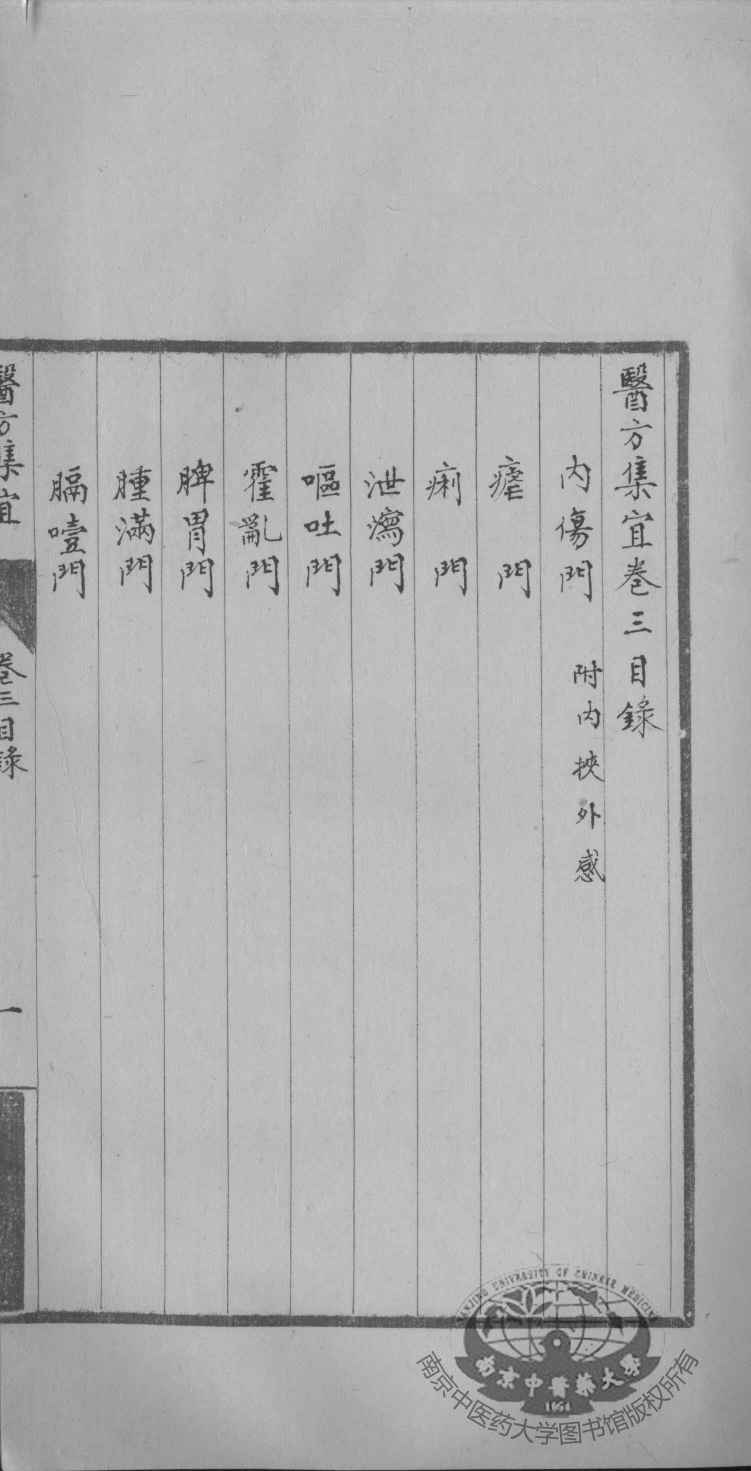 醫方集宜卷三目錄
內傷門 附內挾外感
瘧門
痢門
泄瀉門
嘔吐門
霍亂門
脾胃門
腫滿門
膈噎門
醫方集宜 卷三目錄 一
NANJING UNIVERSITY OF CHINESE MEDICINE
南京中醫藥大學
1954
南京中医药大学图书馆版权所有